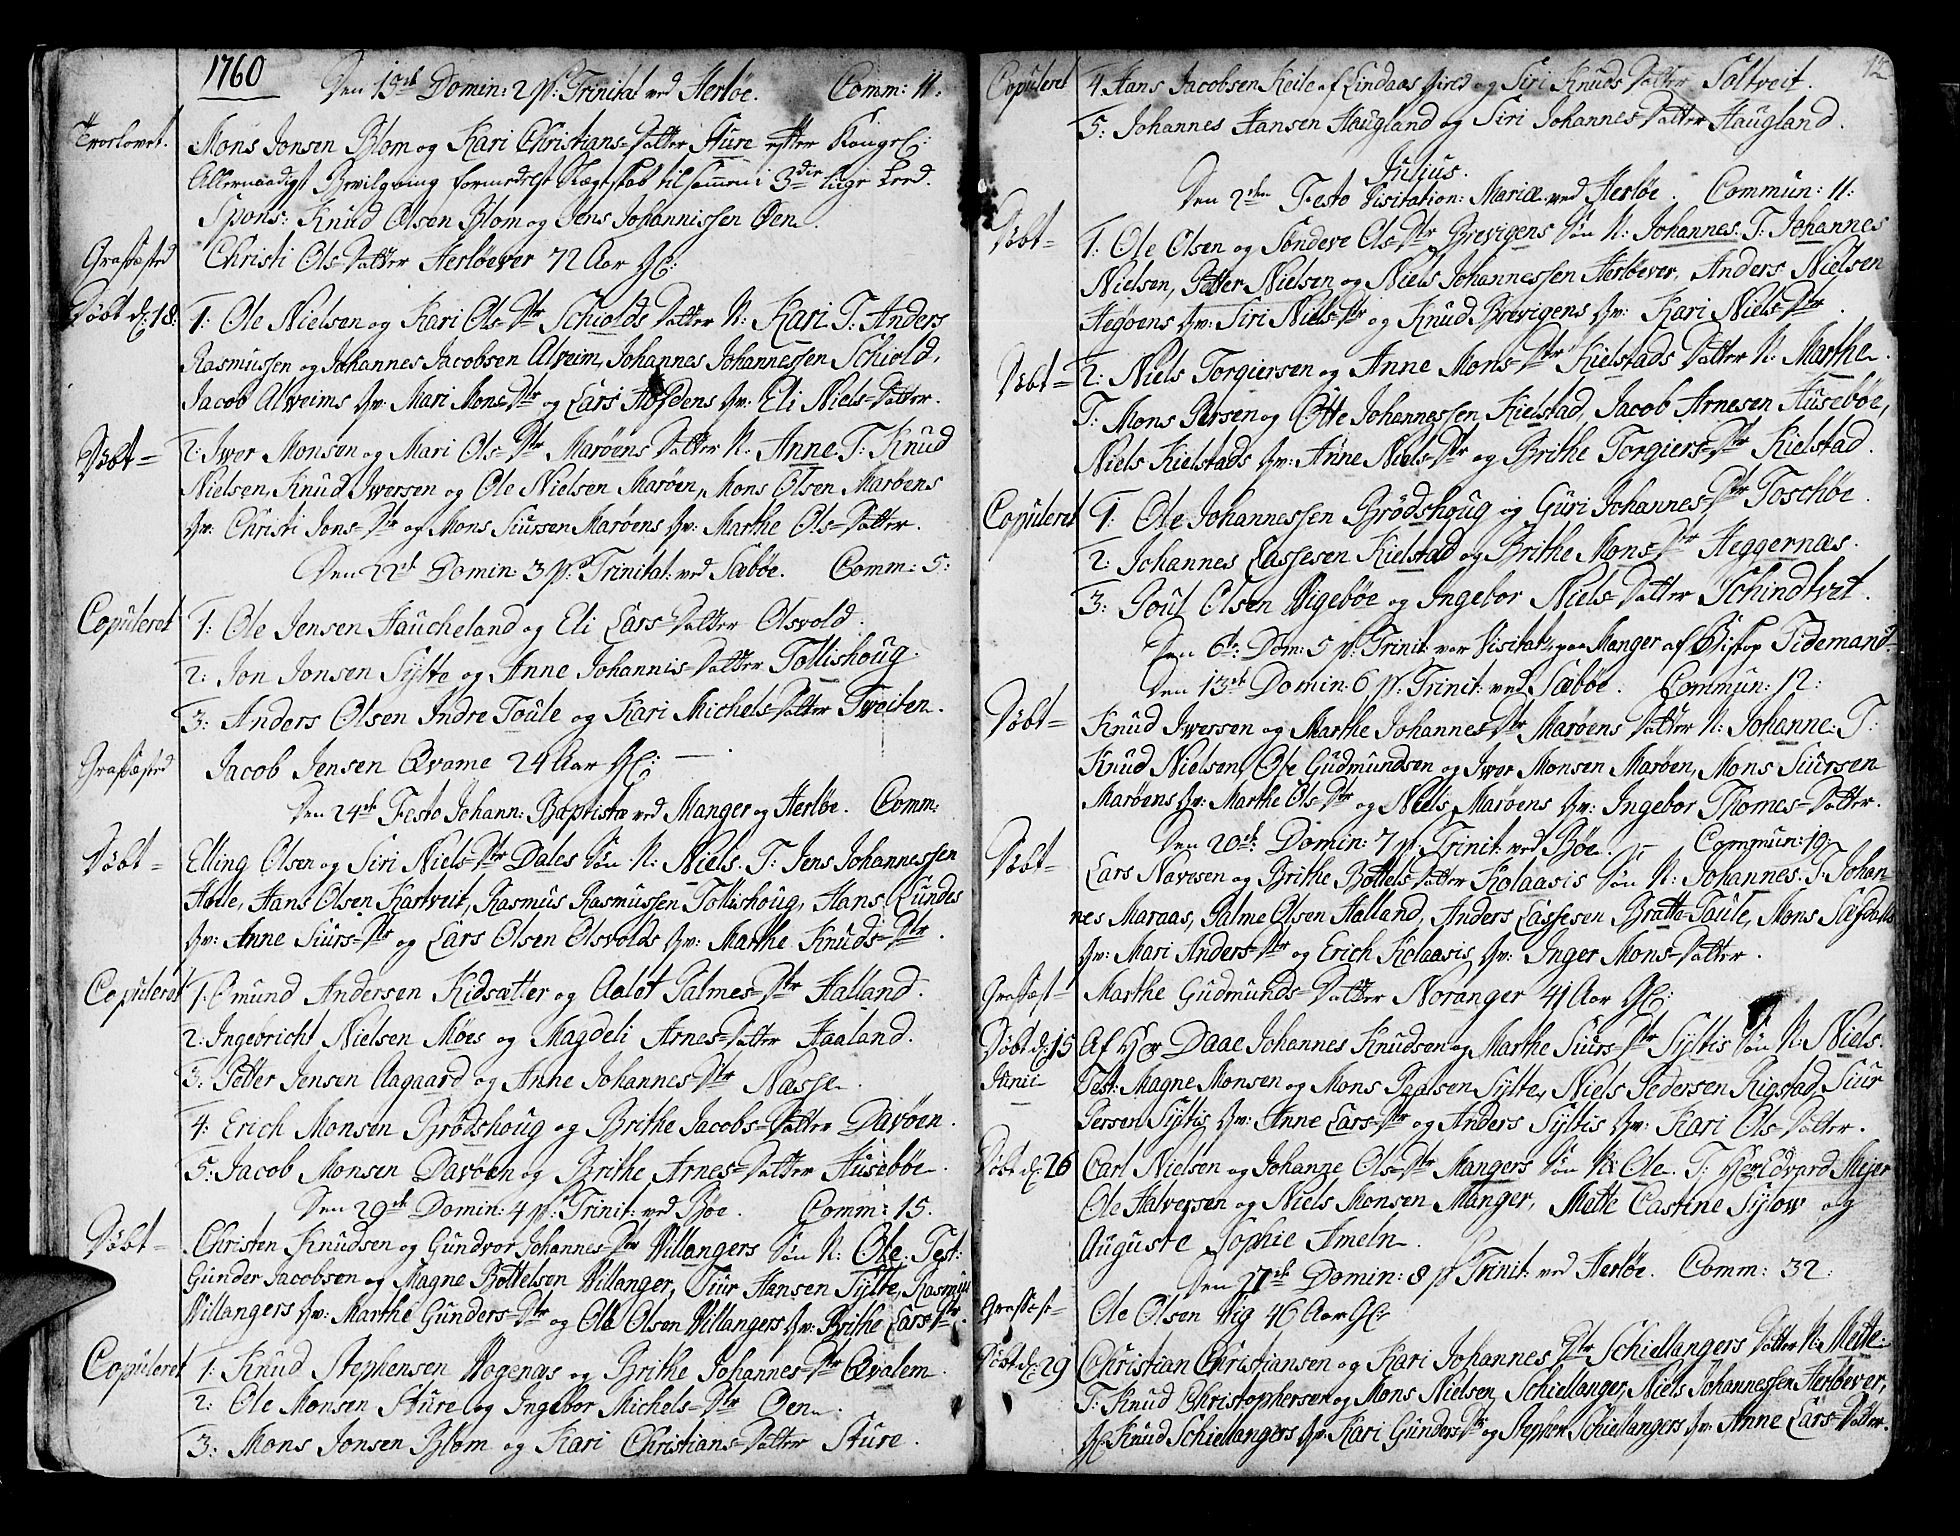 1760
Den 15de Domin: 2 p: Trinitat ved Herløe. Comm: 11:
Troelovet. Mons Jonsen Blom og Kari Christians-Datter Sture efter Kongel:
Allernaadigst Bevilgning formedelst Slægtskab tilsammen i 3die lige Leed.
Spons: Knud Olsen Blom og Jens Johannissen Øen.
Græsfæsted Christi Ols-Datter Herløever 72 Aar Gl:
Døbt d: 18: 1: Ole Nielsen og Kari Ols-Dtr Schiolds Datter N: Kari T: Anders
Rasmussen og Johannes Jacobsen Alveim, Johannes Johannessen Schiold,
Jacob Alveims Qv: Mari Mons-Dtr og Lars Qv: Eli Niels-Datter.
Døbt= 2: Iver Monsen og Mari Ols-Dtr Marøens Datter N: Anne T: Knud
Nielsen, Knud Iversen og Ole Nielsen Marøen, Mons Olsen Marøens
Qv: Christi Jons-Dtr og Mons Siursen Marøens Qv: Marthe Ols-Datter.
Den 22de Domin: 3 p: Trinitat: ved Sæbøe. Comm: 5:
Copuleret 1: Ole Jensen Haucheland og Eli Lars-Datter Olsvold.
2: Jon Jonsen Sylte og Anne Johannis-Datter Tollishoug.
3: Anders Olsen Indre Toule og Kari Michels-Datter Tveiten.
Græsfæsted Jacob Jensen Qvame 24 Aar Gl:
Den 24de Festo Johann: Baptistæ ved Manger og Herløe. Comm:
Døbt= Elling Olsen og Siri Niels-Dtr Dales Søn N: Niels. T: Jens Johannessen
Hans Olsen Kartveit, Rasmus Rasmussen Tollishoug, Hans Lundes
Qv: Anne Siurs-Dtr og Lars Olsen Olsvolds Qv: Marthe Knuds-Dtr.
Copuleret 1: Omund Andersen Kidsætter og Aalot Palmes-Dtr Halland.
2: Ingebricht Nielsen Møes og Magdeli Arnes-Datter Haaland.
3: Petter Jensen Aagaard og Anne Johannes-Dtr Næsse.
4: Erich Monsen Brødshoug og Brithe Jacobs-Datter Davøen.
5: Jacob Monsen Davøen og Brithe Arnes-Datter Husebøe.
Den 29de Domin: 4 p: Trinit: ved Bøe. Comm: 15.
Døbt= Christen Knudsen og Gundvor Johannes-Dtr Villangers Søn N: Ole. Test:
Gunder Jacobsen og Magne Bottelsen Villanger, Siur Hansen Sylte, Rasmus
Villangers Qv: Marthe Gunders-Dtr og Ole Olsen Villangers Qv: Brithe Lars-Dtr.
Copuleret 1: Knud Stephensen Vogenæs og Brithe Johannes-Dtr Qvalem.
2: Ole Monsen Sture og Ingebor Michels-Dtr Øen.
3: Mons Jonsen Blom og Kari Christians-Datter Sture.
12
Copuleret 4: Hans Jacobsen Keile af Lindaas Gield og Siri Knuds-Datter Saltveit.
5: Johannes Hansen Haugland og Siri Johannes-Datter Haugland.
Julius.
Den 2den Festo Visitation: Mariæ ved Herløe. Commun: 11:
Døbt= 1: Ole Olsen og Sønneve Ols-Dtr Brevigens Søn N: Johannes. T: Johannes
Nielsen, Petter Nielsen og Niels Johannessen Herløever, Anders Nielsen
Hegøens Qv: Siri Niels-Dtr og Knud Brevigens Qv: Kari Niels-Dtr.
Døbt= 2: Niels Torgiersen og Anne Mons-Dtr Kielstads Datter N: Marthe.
T: Mons Persen og Otte Johannessen Kielstad, Jacob Arnesen Husebøe,
Niels Kielstads Qv: Anne Niels-Dtr og Brithe Torgiers-Dtr Kielstad.
Copuleret 1: Ole Johannessen Brødshoug og Guri Johannes-Dtr Toschøe.
2: Johannes Lassesen Kielstad og Brithe Mons-Dtr Heggernæs.
3: Poul Olsen Vigebøe og Ingebor Niels-Datter Schindtvet.
Den 6te Dom: 5 p: Trinit: var Visitats paa Manger af Bisop Tidemand
Den 13de Domin: 6 p: Trinit: ved Sæbøe. Commun: 12:
Døbt= Knud Iversen og Marthe Johannes-Dtr Marøens Datter N: Johanne. T:
Knud Nielsen, Ole Gudmundsen og Iver Monsen Marøen, Mons Siursen
Marøens Qv: Marthe Ols-Dtr og Niels Marøens Qv: Ingebor Thomes-Datter.
Den 20de Domin: 7 p: Trinit: ved Bøe. Commun: 19:
Døbt= Lars Navesen og Brithe Bottels-Datter Kolaasis Søn N: Johannes. T: Johan-
nes Maraas, Palme Olsen Helland, Anders Lassesen Bratte-Taule, Mons Sæfdals
Qv: Mari Anders-Dtr og Erich Kolaasis Qv: Inger Mons-Datter.
Græsfæst= Marthe Gudmunds-Datter Noranger 41 Aar Gl:
Døbt d: 15 Junii Af Hr Daae Johannes Knudsen og Marthe Siurs-Dtr Syltis Søn N: Niels.
Test: Magne Monsen og Mons Paalsen Sylte, Niels Pedersen Rigstad, Siur
Persen Syltis Qv: Anne Lars-Dtr og Anders Syltis Qv: Kari Ols-Datter.
Døbt d: 26 Carl Nielsen og Johanne Ols-Dtr Mangers Søn N: Ole. T: Hr Edvard Mejer
Ole Halversen og Niels Monsen Manger, Mette Castine Sylow og
Auguste Sophie Ameln.
Den 27de Domin: 8 p: Trinit: ved Herløe. Comm: 32:
Græsfæst= Ole Olsen Vig 46 Aar Gl:
Døbt d: 29 Christian Christiansen og Kari Johannes Dtr Schiellangers Datter N: Mette.
T: Knud Christophersen og Mons Nielsen Schiellanger, Niels Johannessen Herløever,
Knud Schiellangers Qv: Kari Gunders-Dtr og Stephen Schiellangers Qv: Anne Lars-Datter.